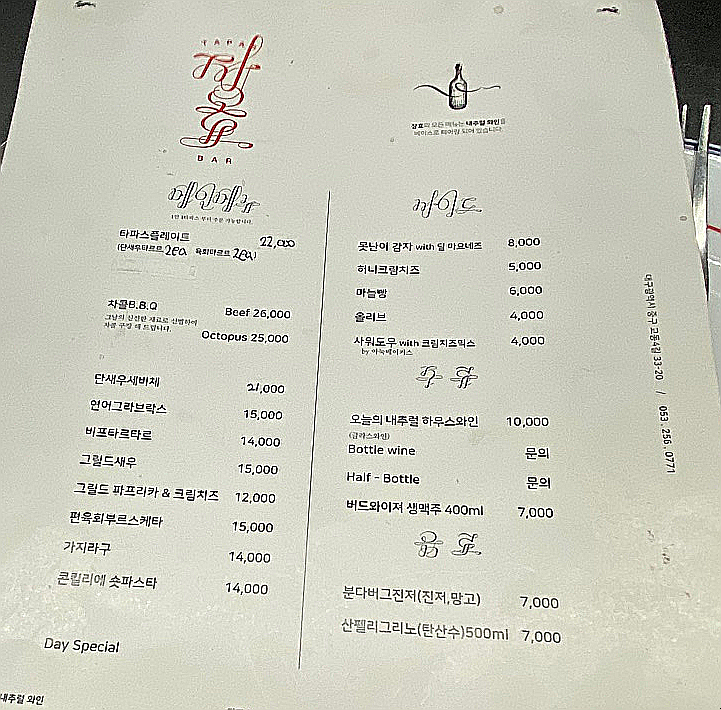 TAPAS
장 호
BAR
장호의 모든 메뉴는 내추럴 와인을
베이스로 페어링 되어 있습니다.
메인메뉴
타파스플레이트 22,000
(단새우타르트 2ea 육회타르트 2ea)
차콜B.B.Q Beef 26,000
그날의 신선한 재료로 선별하여
차콜 구장 해 드립니다.
Octopus 25,000
단새우세비체 21,000
연어그라브락스 15,000
비프타르타르 14,000
그릴드새우 15,000
그릴드 파프리카 & 크림치즈 12,000
편육회부르스케타 15,000
가지라구 14,000
콘킬리에 숏파스타 14,000
Day Special
사이드
못난이 감자 with 딜 마요네즈 8,000
허니크림치즈 5,000
마늘빵 6,000
올리브 4,000
사워도우 with 크림치즈믹스 4,000
by 아눅베이커스
주 류
오늘의 내추럴 하우스와인 10,000
(글라스와인)
Bottle wine 문의
Half - Bottle 문의
버드와이저 생맥주 400ml 7,000
음 료
분다버그진저(진저,망고) 7,000
산펠리그리노(탄산수)500ml 7,000
대구광역시 중구 교동4길 33-20 / 053 . 256 . 0771
내추럴 와인